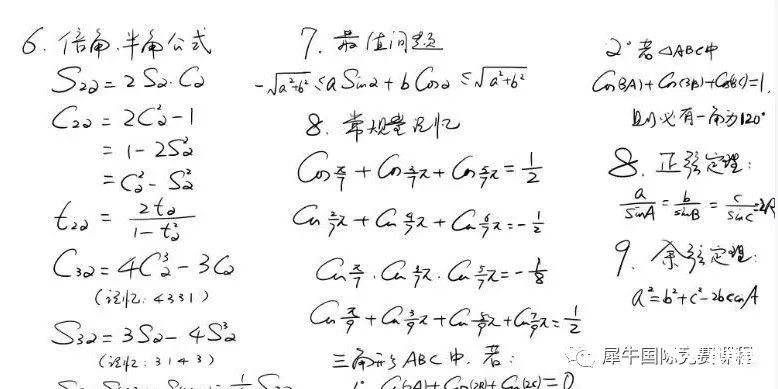 6. 倍角.半角公式
S2α = 2Sα·Cα
C2α = 2Cα² - 1
= 1 - 2Sα²
= Cα² - Sα²
t2α = 2tα / (1 - tα²)
C3α = 4Cα³ - 3Cα
(记忆: 4331)
S3α = 3Sα - 4Sα³
(记忆: 3143)
7. 最值问题
-√(a²+b²) ≤ a Sinα + b Cosα ≤ √(a²+b²)
8. 常规量记忆
Cos π/7 + Cos 3/7 π + Cos 5/7 π = 1/2
Cos 2/7 π + Cos 4/7 π + Cos 6/7 π = -1/2
Cos π/7 · Cos 3/7 π · Cos 5/7 π = -1/8
Cos π/9 + Cos 3/9 π + Cos 5/9 π + Cos 7/9 π = 1/2
三角形ABC中, 若:
1° Cos(2A) + Cos(2B) + Cos(2C) = 0
2° 若△ABC中
Cos(3A) + Cos(3B) + Cos(3C) = 1,
则必有一角为120°
8. 正弦定理:
a/sinA = b/sinB = c/sinC = 2R
9. 余弦定理:
a² = b² + c² - 2bccosA
犀牛国际竞赛课程